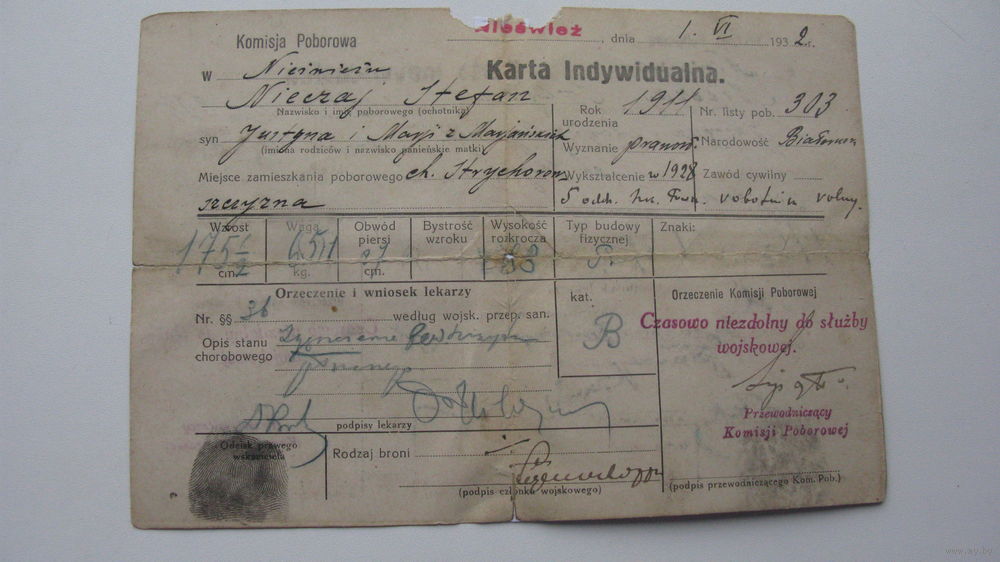 Nieśwież, dnia 1. VI 1932.r.
Komisja Poborowa
w Nieświeżu
Karta Indywidualna.
Nieczaj Stefan
Nazwisko i imię poborowego (ochotnika)
Rok urodzenia 1911
Nr. listy pob. 303
syn Justyna i Marji z
(imiona rodziców i nazwisko panieńskie matki)
Wyznanie prawosł.
Narodowość
Miejsce zamieszkania poborowego ch.
szczyzna
Wykształcenie w 1928
5 oddz.
Zawód cywilny
robotnik rolny.
Wzrost 175 1/2 cm.
Waga kg.
Obwód piersi cm.
Bystrość wzroku
Wysokość rozkrocza 83
Typ budowy fizycznej
Znaki:
Orzeczenie i wniosek lekarzy
Nr. §§ 36 według wojsk. przep. san.
Opis stanu chorobowego
kat. B
podpisy lekarzy
Orzeczenie Komisji Poborowej
Czasowo niezdolny do służby
wojskowej.
Przewodniczący
Komisji Poborowej
(podpis przewodniczącego Kom. Pob.)
Odcisk prawego
wskaziciela
Rodzaj broni
(podpis członka wojskowego)
www.ay.by